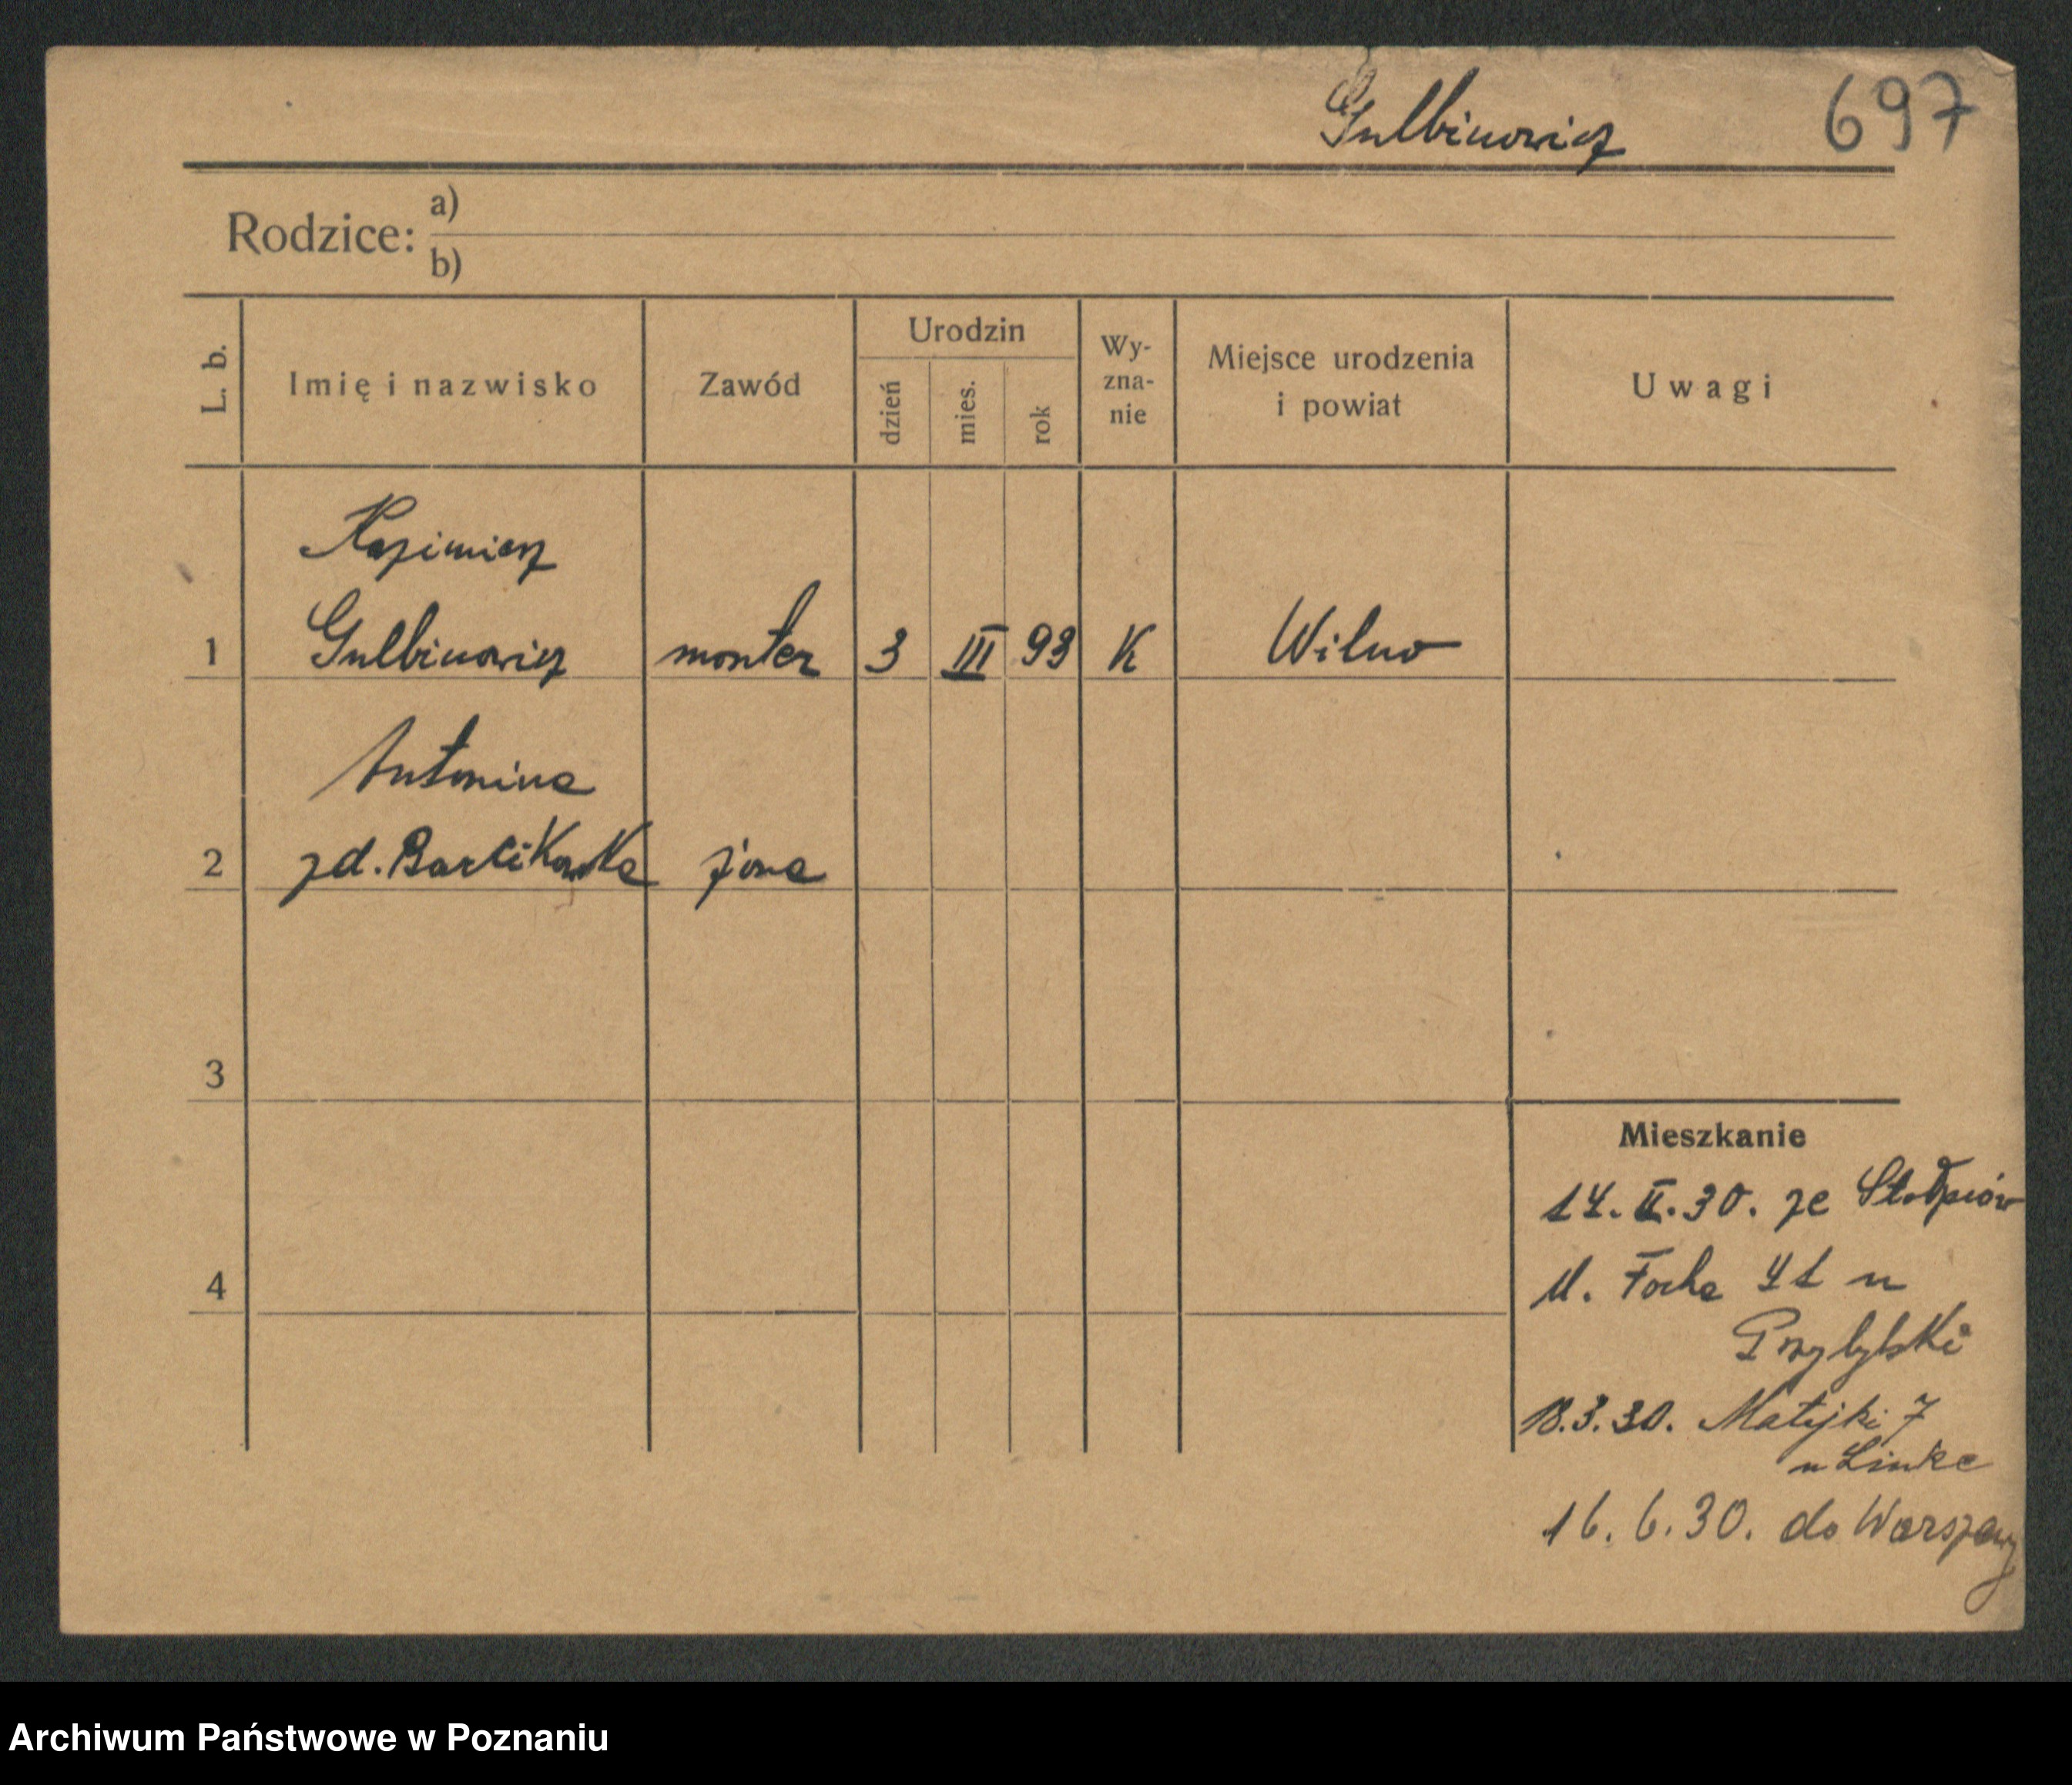 Gulbinowicz 697
Rodzice: a)
b)
L. b. Imię i nazwisko Zawód Urodzin dzień mies. rok Wy-zna-nie Miejsce urodzenia i powiat Uwagi
Kazimierz
1 Gulbinowicz monter 3 III 93 K Wilno
Antonina
2 zd. Barcikowska żona
3
Mieszkanie
14. II. 30. ze Stołpców
4 ul. Focha 41 u
Przybylski
18.3.30. Matejki 7
u Linke
16. 6. 30. do Warszawy
Archiwum Państwowe w Poznaniu